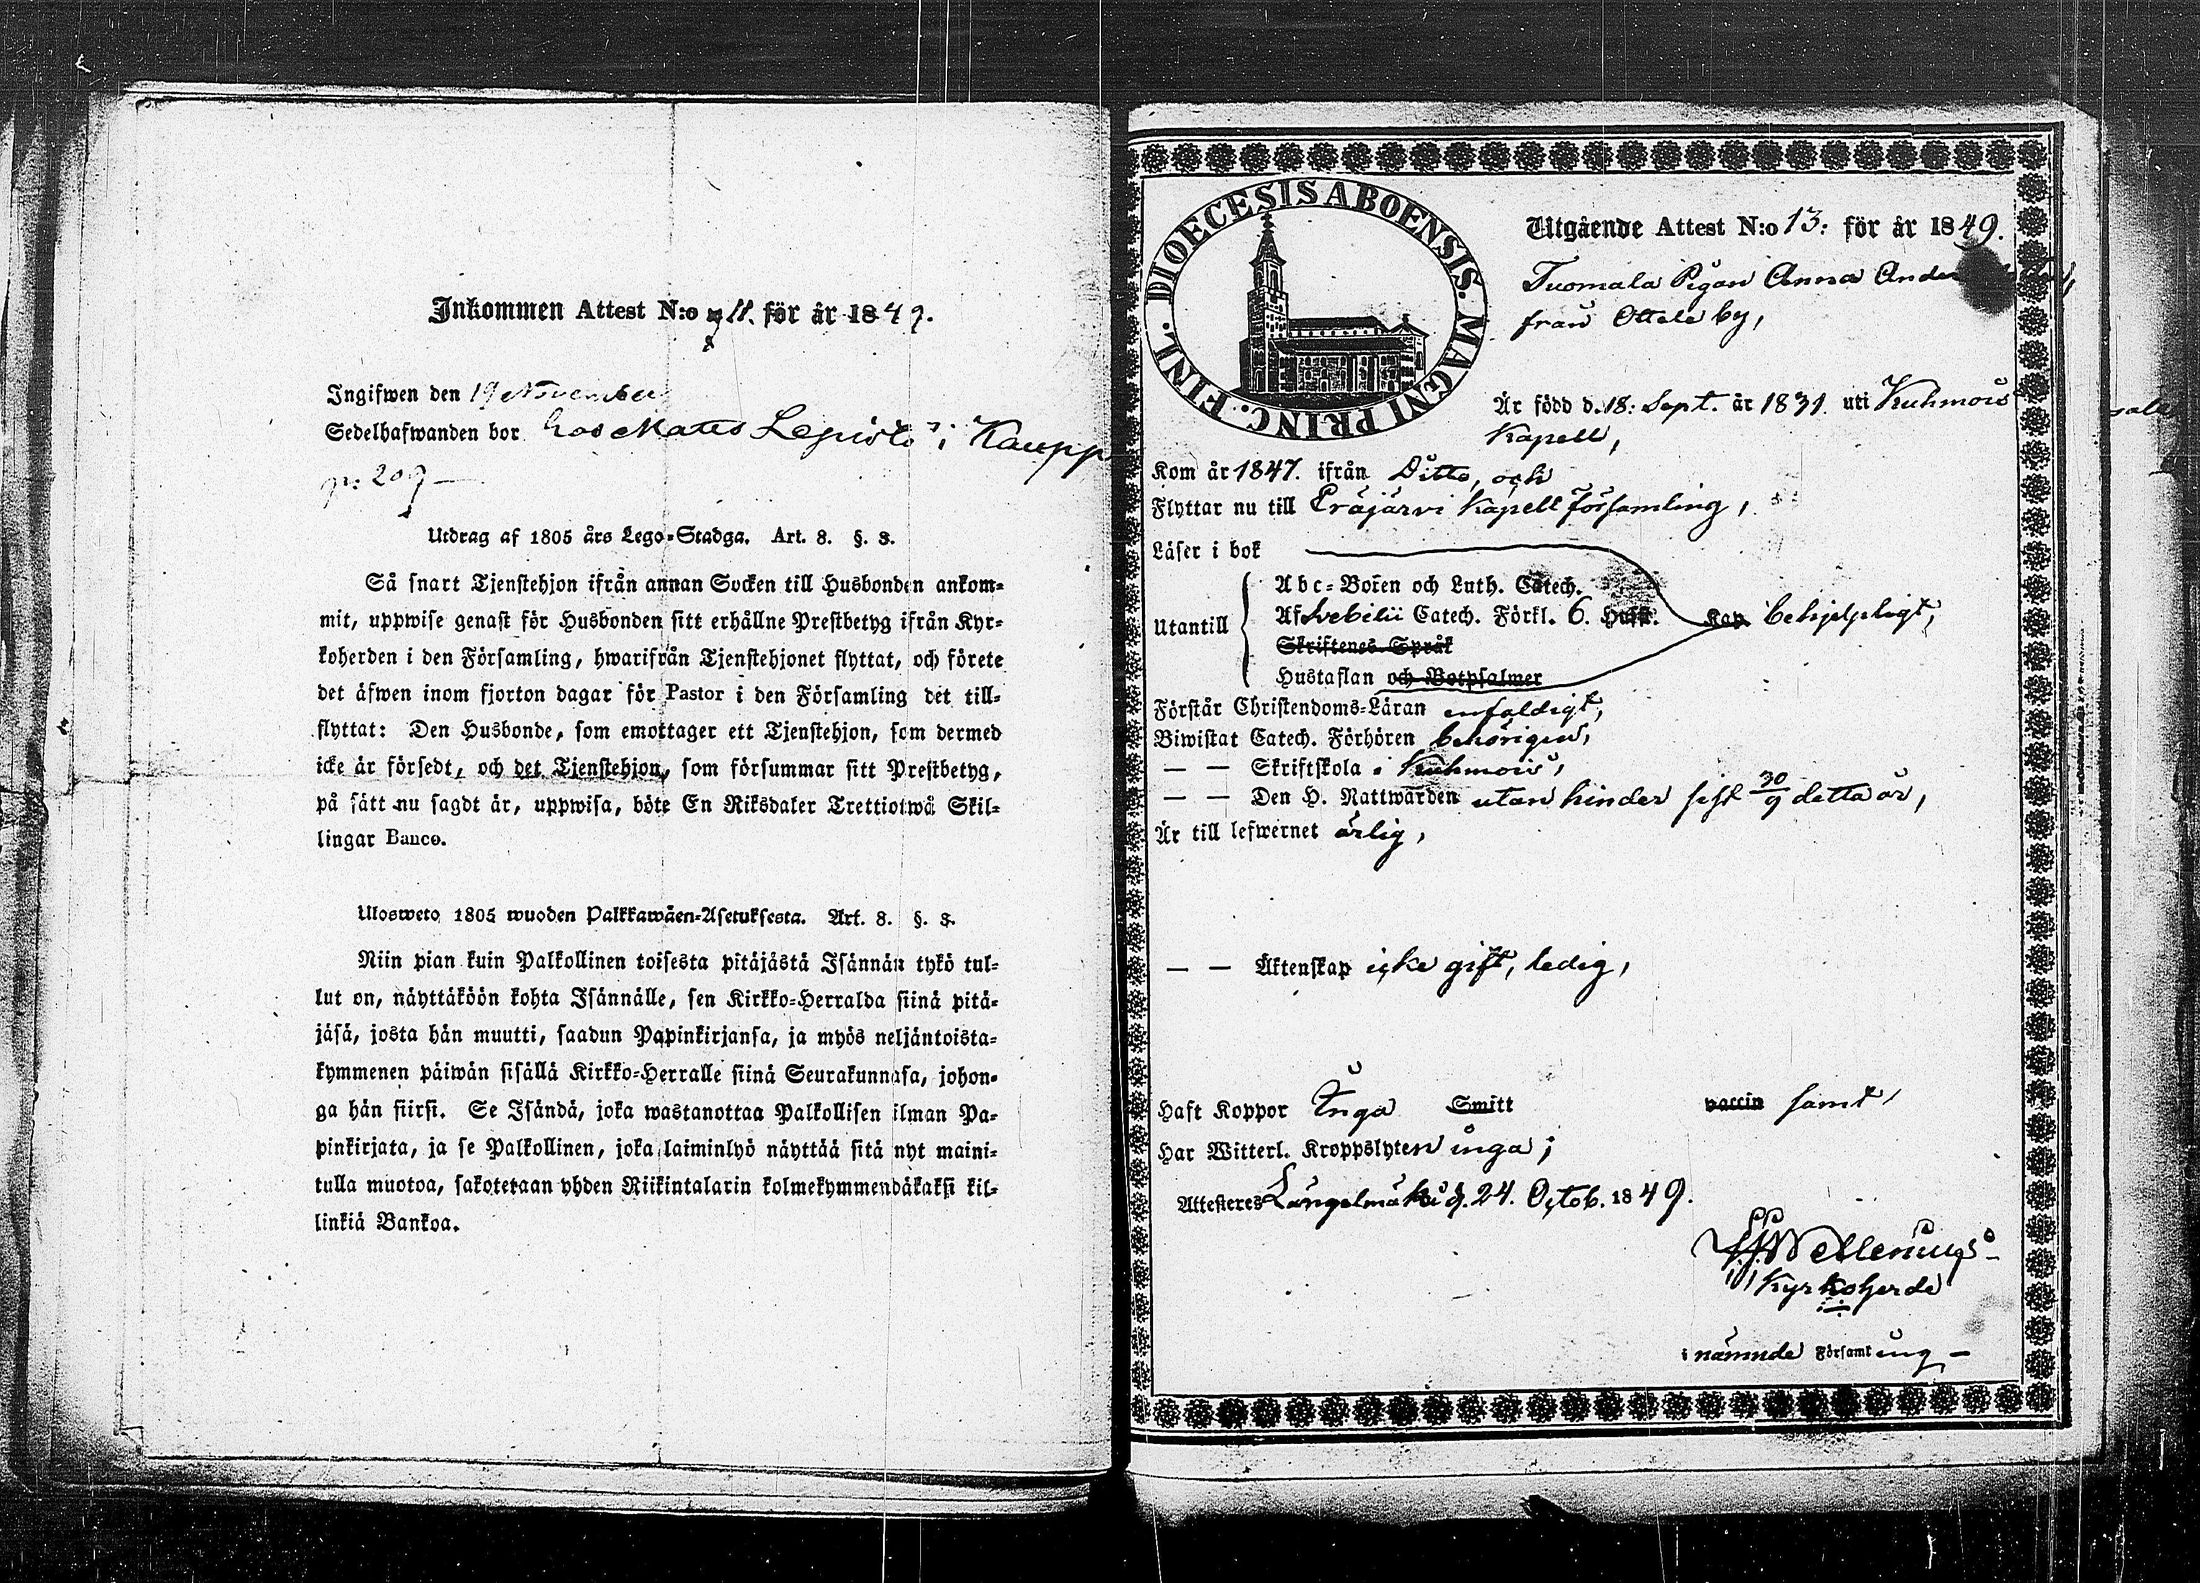 Inkommen Attest N:o 11. för år 1849.
Ingifwen den 19 November
Sedelhafwanden bor hos Matts Lepistö i Kaupp
p: 209 —
Utdrag af 1805 års Lego-Stadga. Art. 8. §. 8.
Så snart Tjenstehjon ifrån annan Socken till Husbonden ankom-
mit, uppwise genast för Husbonden sitt erhållne Prestbetyg ifrån Kyr-
koherden i den Församling, hwarifrån Tjenstehjonet flyttat, och förete
det äfwen inom fjorton dagar för Pastor i den Församling det till-
flyttat: Den Husbonde, som emottager ett Tjenstehjon, som dermed
icke är försedt, och det Tjenstehjon, som försummar sitt Prestbetyg,
på sätt nu sagdt är, uppwisa, böte En Riksdaler Trettiotwå Skil-
lingar Banco.
Ulosweto 1805 wuoden Palkkawäen-Asetuksesta. Art. 8. §. 8.
Niin pian kuin Palkollinen toisesta pitäjästä Isännän tykö tul-
lut on, näyttäköön kohta Isännälle, sen Kirkko-Herralda siinä pitä-
jäsä, josta hän muutti, saadun Papinkirjansa, ja myös neljäntoista-
kymmenen päiwän sisällä Kirkko-Herralle siinä Seurakunnasa, johon-
ga hän siirsi. Se Isändä, joka wastanottaa Palkollisen ilman Pa-
pinkirjata, ja se Palkollinen, joka laiminlyö näyttää sitä nyt maini-
tulla muotoa, sakotetaan yhden Riikintalarin kolmekymmendäkaksi kil-
linkiä Bankoa.
DIOECESIS ABOENSIS. MAGNI PRINC. FINL.
Utgående Attest N:o 13: för år 1849.
Tuomala Pigan Anna
från Ottala by,
Är född d. 18: Sept. år 1831. uti Kuhmois
Kapell,
Kom år 1847. ifrån Ditto, och
Flyttar nu till Eräjärvi Kapell församling,
Läser i bok
Abc-Boken och Luth. Catech.
Utantill Af Svebilii Catech. Förkl. 6. Hufst. Kap. behjelpligt,
Skriftenes Språk
Hustaflan och Botpsalmer
Förstår Christendoms-Läran enfaldigt,
Biwistat Catech. Förhören behörigen,
— — Skriftskola i Kuhmois,
— — Den H. Nattwarden utan hinder sist 30/9 detta år,
Är till lefwernet ärlig,
— — Äktenskap icke gift, ledig,
Haft Koppor Inga Smitt vaccin samt,
Har Witterl. Kroppslyten inga;
Attesteres Längelmäki d. 24. Octob. 1849.
Kyrkoherde
i nämnde Församling —